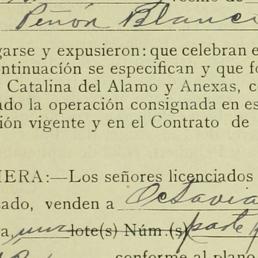 Peñón Blanco
garse y expusieron: que celebran e
ontinuación se especifican y que fo
Catalina del Alamo y Anexas, c
ado la operación consignada en es
ión vigente y en el Contrato de
IERA:—Los señores licenciados
ado, venden a Octavia
a, una lote(s) Núm.(s) parte
conforme al plano